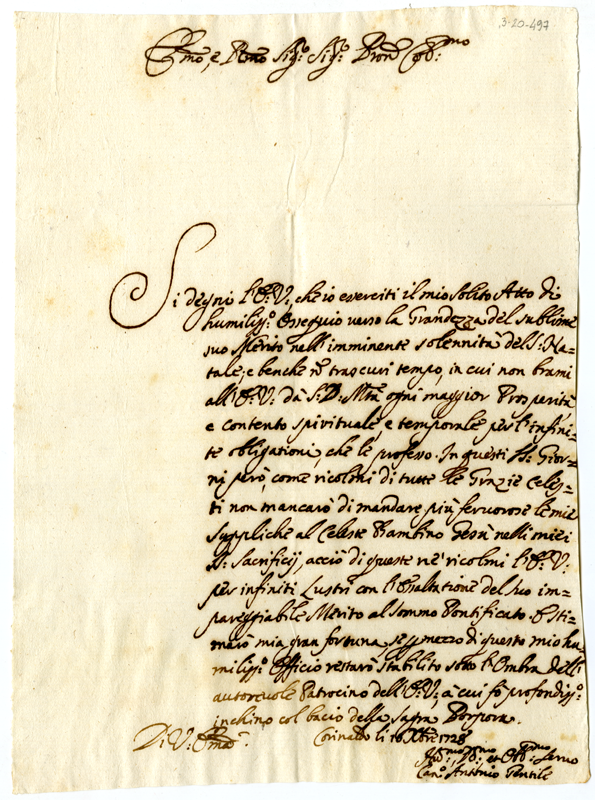 3-20-497
Emo, e Rmo Sigr. Sigr. Pron Cole:mo
Si degni l'E:V:, che io eserciti il mio solito Atto di
humiliss:o Ossequio verso la Grandezza del sublime
suo Merito nell'imminente solennità del S: Na=
tale; e benche nō trascuri tempo, in cui non brami
all'E:V: dà S:D:Mtà ogni maggior Prosperità,
e contento spirituale, e temporale per l'infini=
te obligationi, che le professo. In questi SS: Gior=
ni però, come ricolmi di tutte le Grazie Celes=
ti non mancarò di mandare più fervorose le mie
suppliche al Celeste Bambino Gesù nelli miei
SS: Sacrificij, acciò di queste nè ricolmi l'E:V:
per infiniti Lustri con l'Esaltatione del suo im=
pareggiabile Merito al Sommo Pontificato. E sti=
marò mia gran fortuna, se p mezzo di questo mio hu=
miliss:o Officio restarò stabilito sotto l'Ombra dell'
autorevole Patrocino dell'E:V:, à cui fò profondiss:o
inchino col bacio della Sagra Porpora.
Di V: Emza
Corinaldo li 16 Xbre 1728
et Obb:mo Servo
Can:o Antonio Gentile